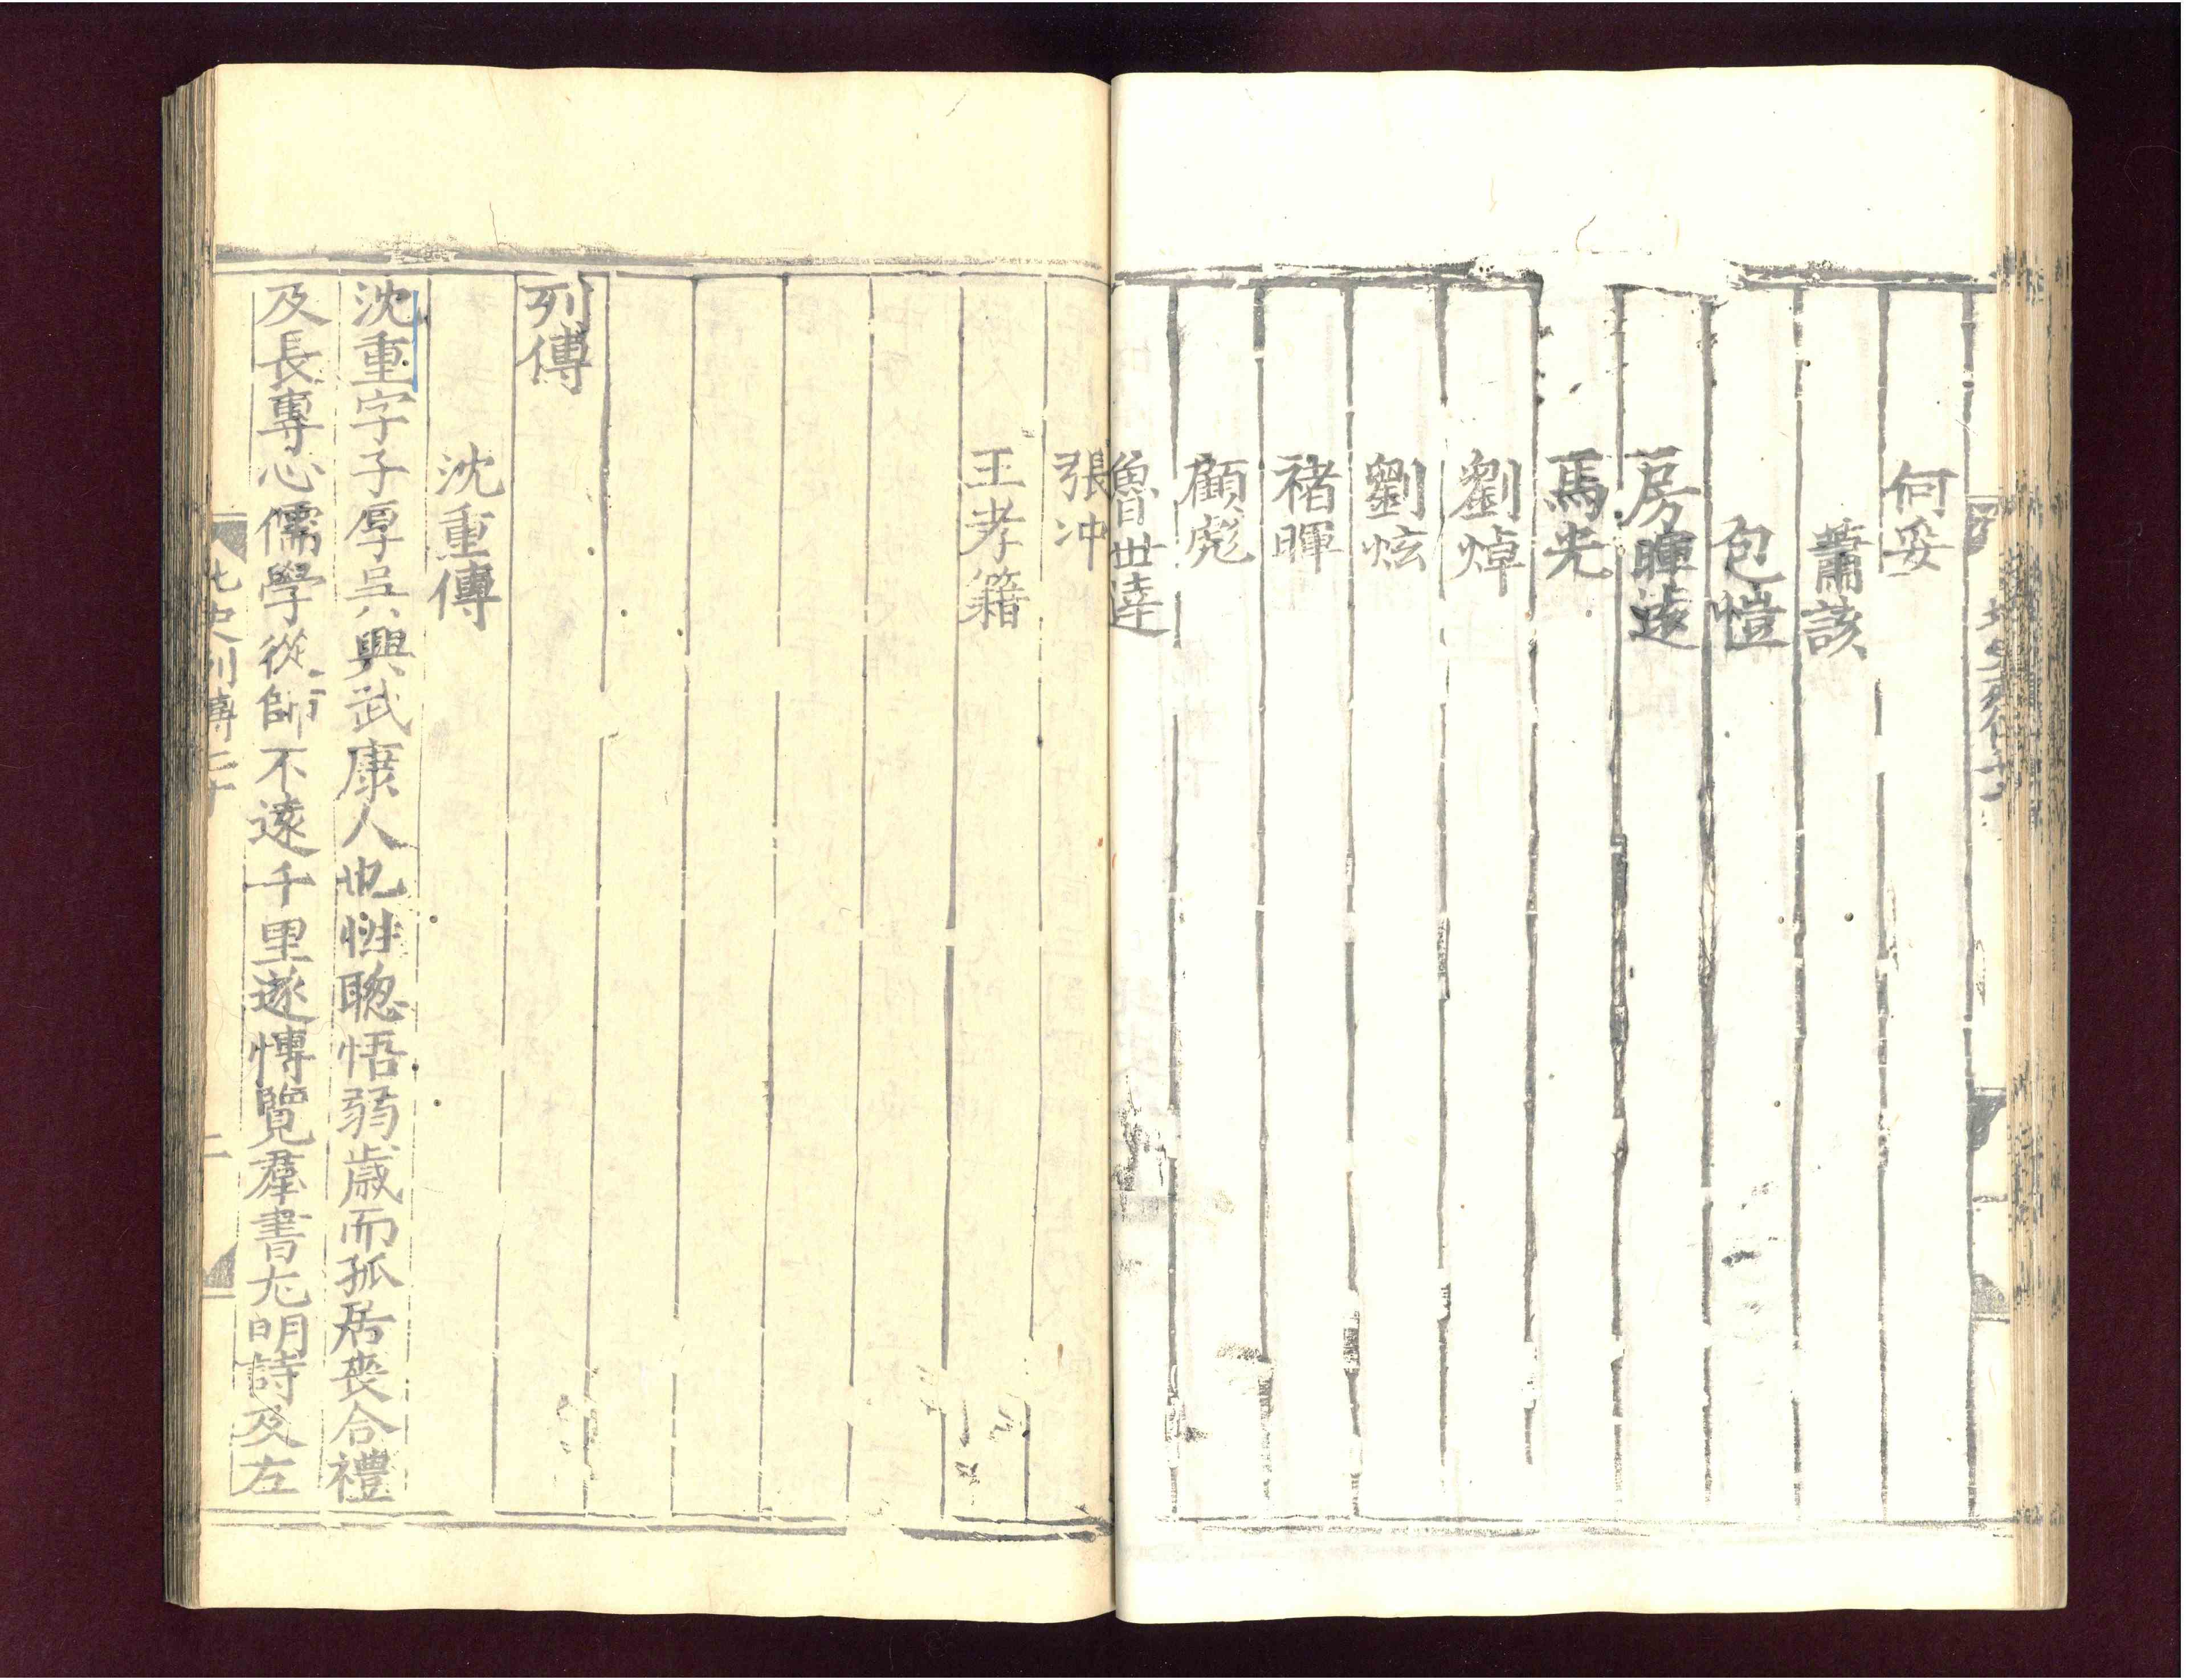 何妥
蕭該
包愷
房暉遠
馬光
劉焯
劉炫
褚暉
顧彪
魯世達
張冲
王孝籍
列傳
沈重傳
沈重字子厚吳興武康人也性聦悟弱歲而孤居喪合禮
及長專心儒學從師不遠千里遂慱覽羣書尤明詩及左
北史列傳七十
二